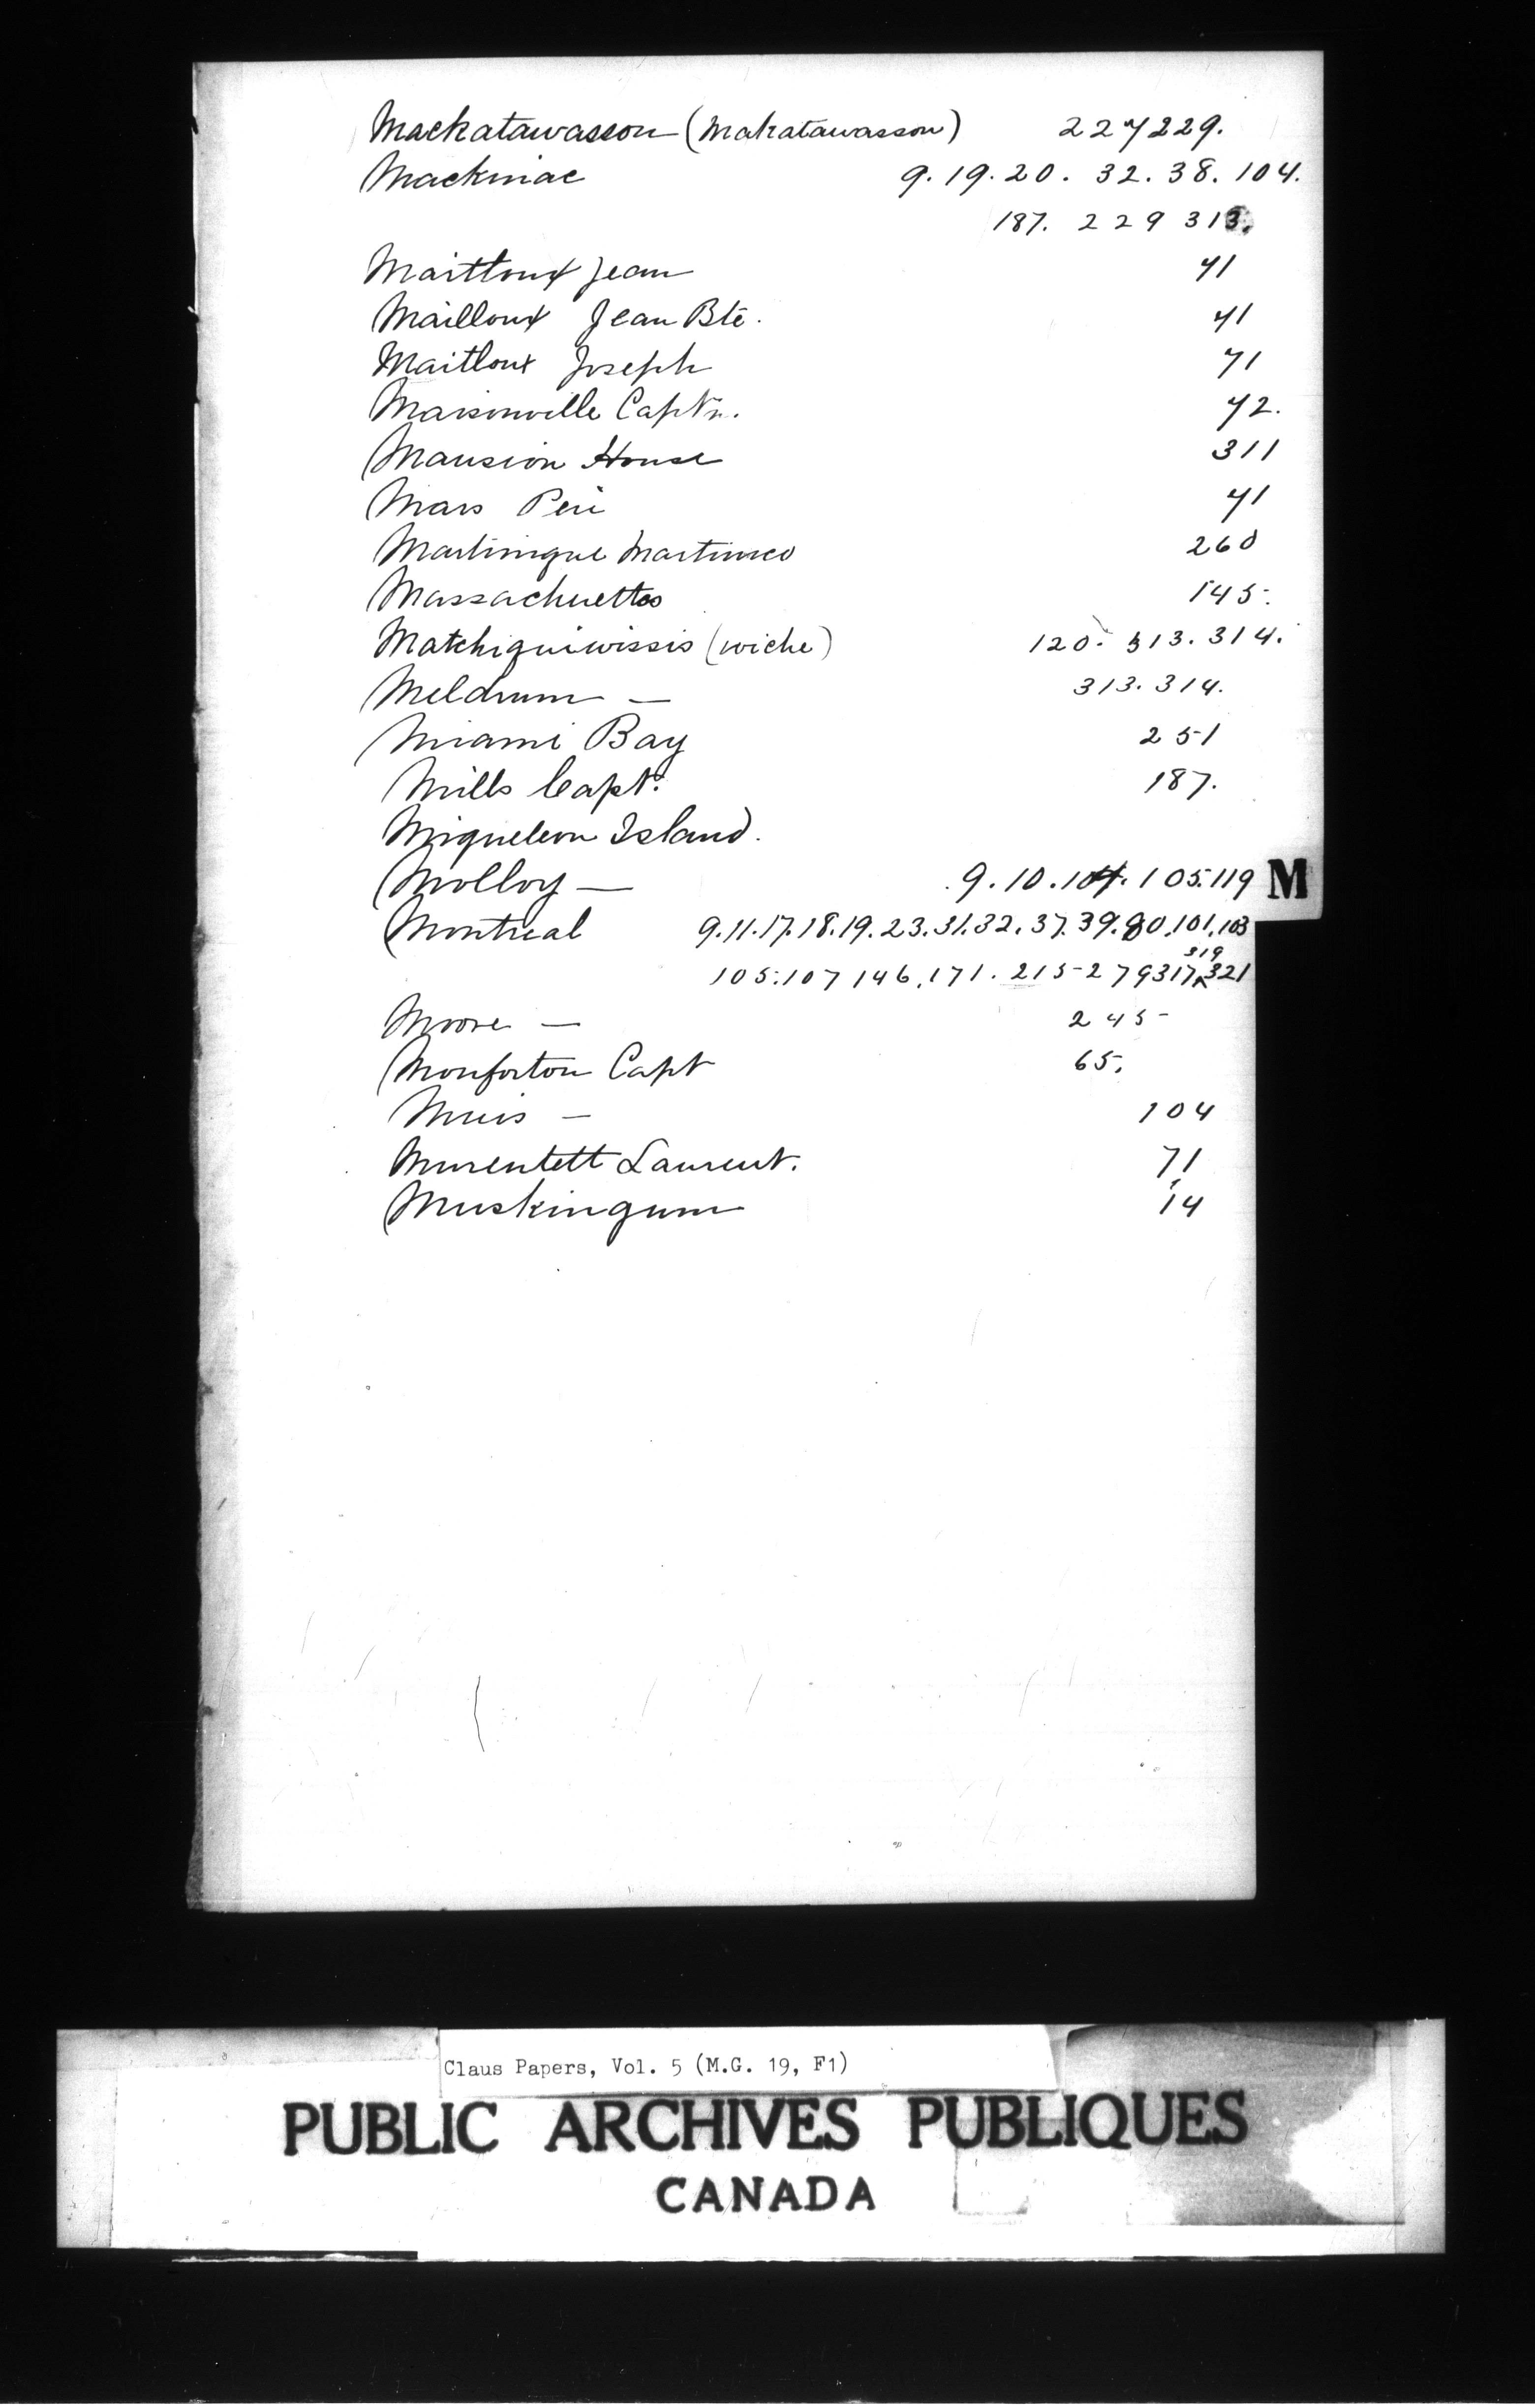 Mackatawasson (Makatawasson) 227 229.
Mackinac 9. 19. 20. 32. 38. 104.
187. 229 313.
Maitloux Jean 71
Mailloux Jean Bte. 71
Maitloux Joseph 71
Maisonville Captn. 72.
Mansion House 311
Mars Peri 71
Martinique Martinico 260
Massachuettes 145.
Matchiquiwissis (wiche) 120. 313. 314.
Meldrum — 313. 314.
Miami Bay 251
Mills Capt. 187.
Miqueleon Island.
Molloy — 9. 10. 104. 105. 119
M
Montreal 9. 11. 17. 18. 19. 23. 31. 32. 37. 39. 80. 101. 103
319
105. 107 146. 171. 215- 279 317 ^ 321
Moore — 245-
Monforton Capt 65.
Muis — 104
Murentett Laurent. 71
Muskingum 14
Claus Papers, Vol. 5 (M.G. 19, F1)
PUBLIC ARCHIVES PUBLIQUES
CANADA